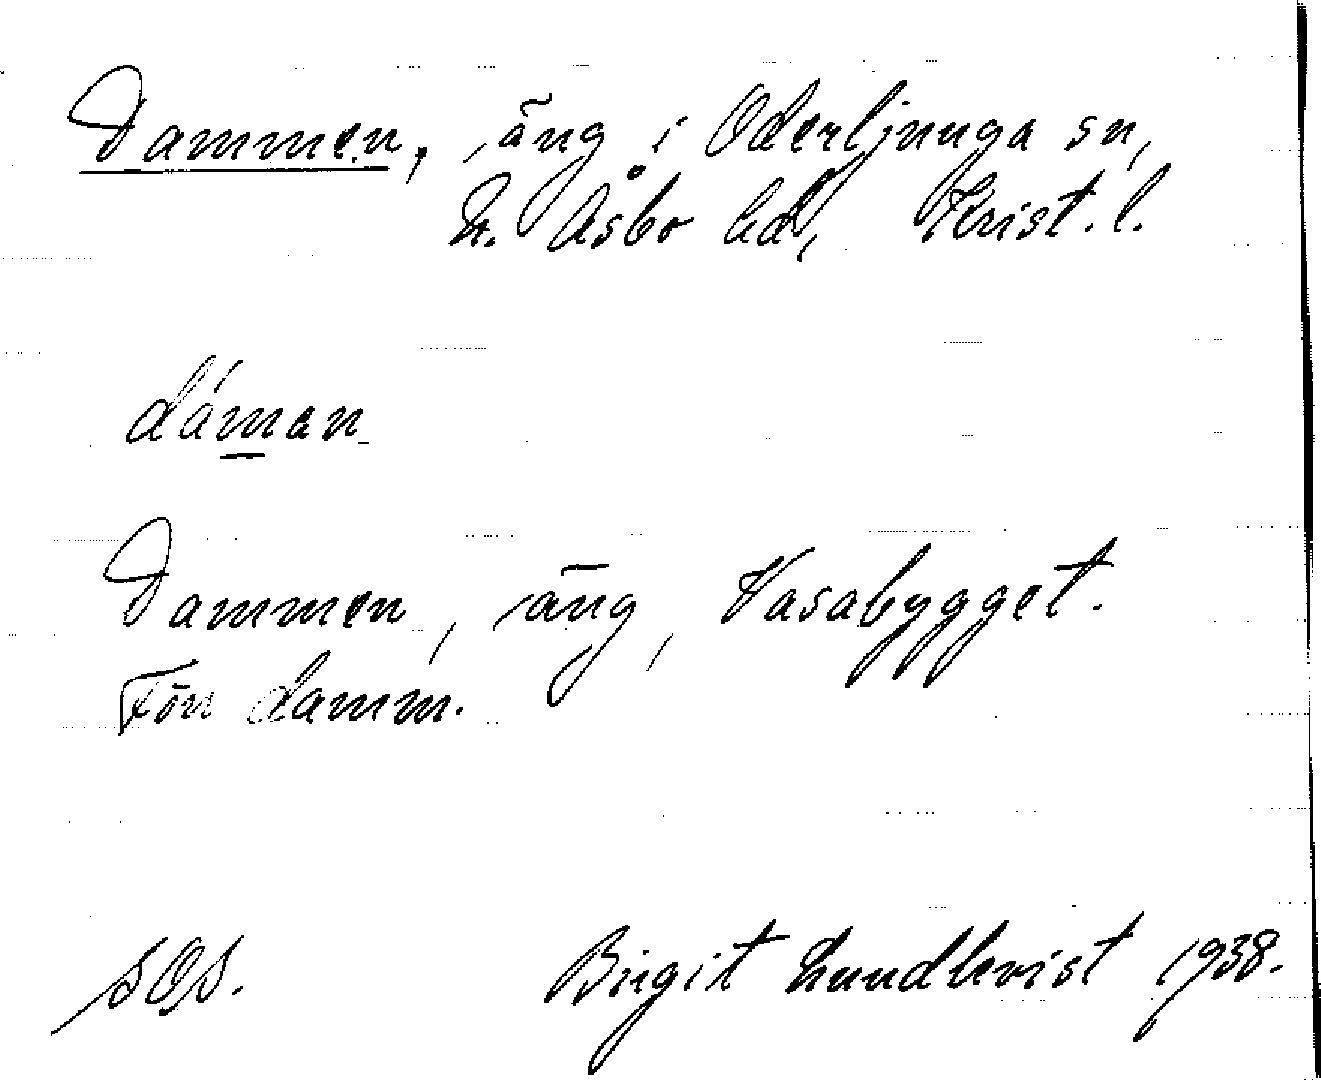 Dammen, äng i Oderljunga sn,
N. Åsbo hd, Krist. l.
dáman
Dammen, äng, Vasabygget.
Förr damm.
SOS. Birgit Lundkvist 1938.